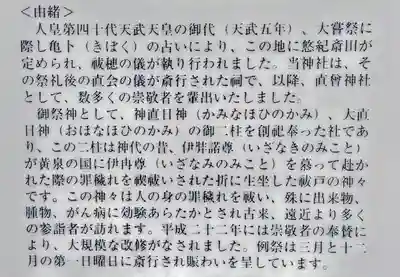 <由緒>
人皇第四十代天武天皇の御代（天武五年）、大嘗祭に
際し亀卜（きぼく）の占いにより、この地に悠紀斎田が
定められ、祓穂の儀が執り行われました。当神社は、そ
の祭礼後の直会の儀が斎行された祠で、以降、直曾神社
として、数多くの崇敬者を輩出いたしました。
御祭神として、神直日神（かみなほひのかみ）、大直
日神（おほなほひのかみ）の御二柱を創祀奉った社であ
り、この二柱は神代の昔、伊弉諾尊（いざなきのみこと）
が黄泉の国に伊冉尊（いざなみのみこと）を慕って赴か
れた際の罪穢れを禊祓いされた折に生坐した祓戸の神々
です。この神々は人の身の罪穢れを祓い、殊に出来物、
腫物、がん病に効験あらたかとされ古来、遠近より多く
の参詣者が訪れます。平成二十二年には崇敬者の奉賛に
より、大規模な改修がなされました。例祭は三月と十二
月の第一日曜日に斎行され賑わいを呈しています。